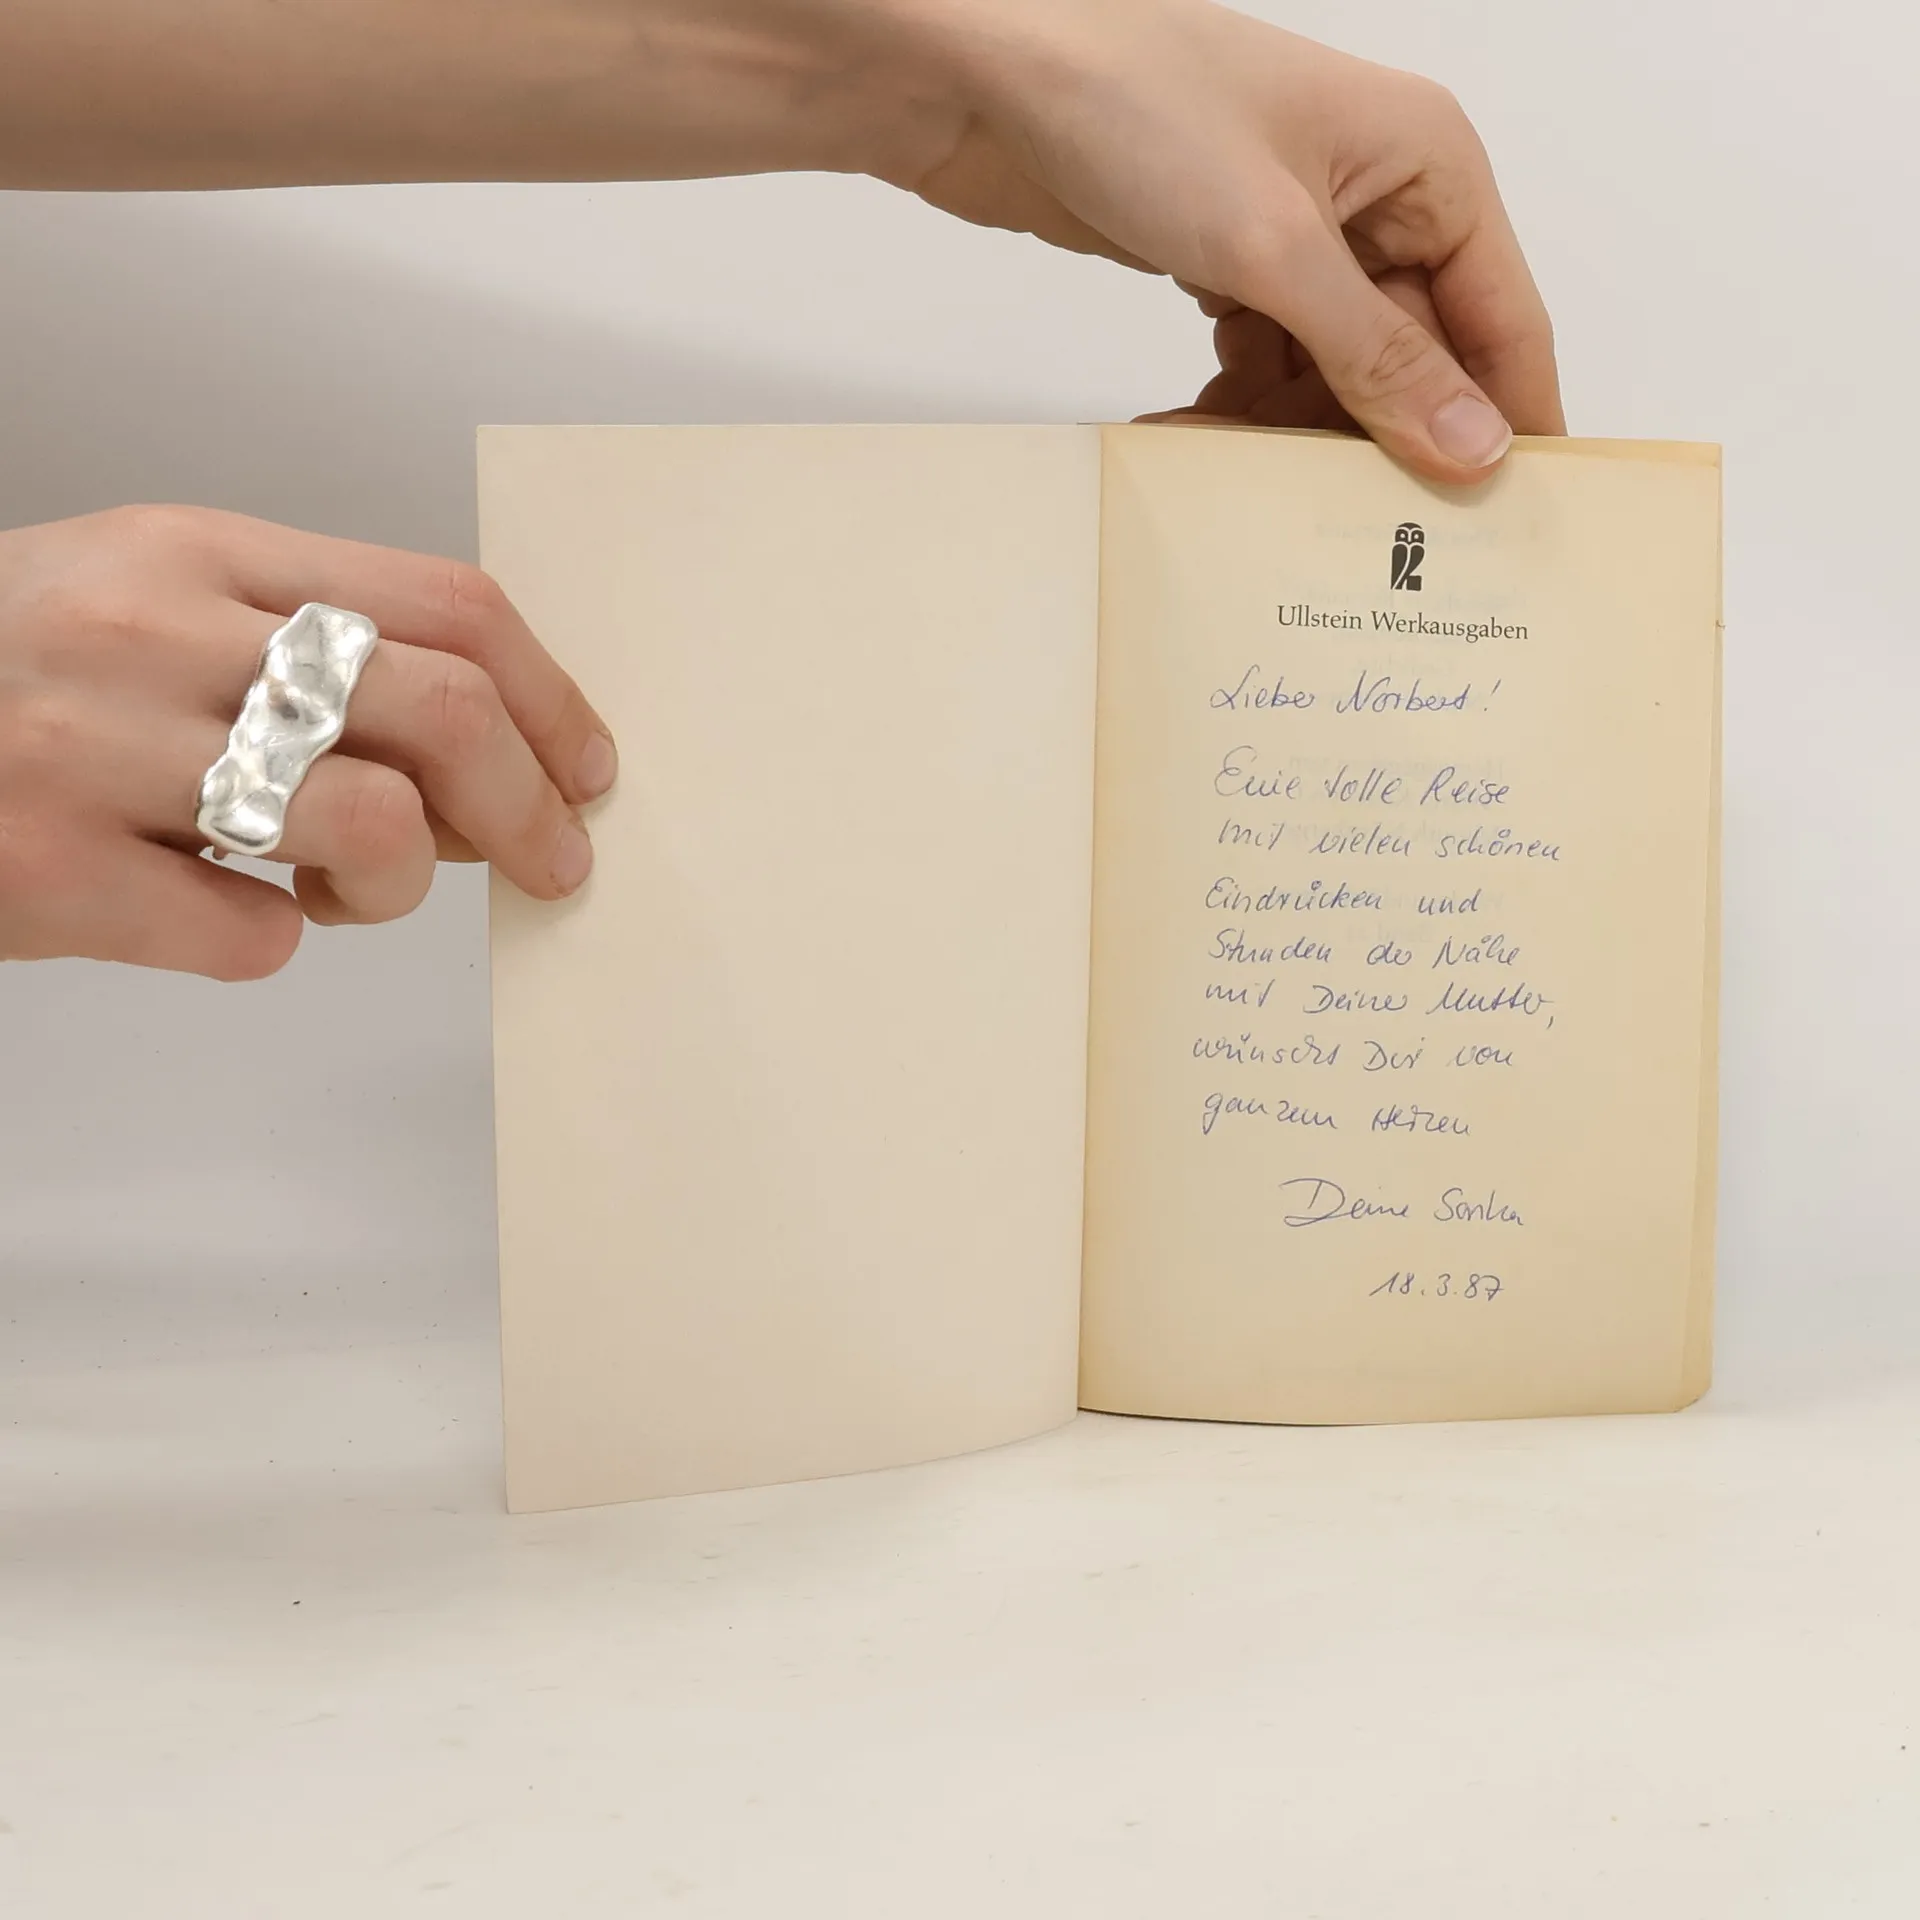 Ullstein Werkausgaben
Lieber Norbert!
Eine tolle Reise
mit vielen schönen
Eindrücken und
Stunden der Nähe
mit Deiner Mutter,
wünscht Dir von
ganzem Herzen
Deine Sonka
18.3.87